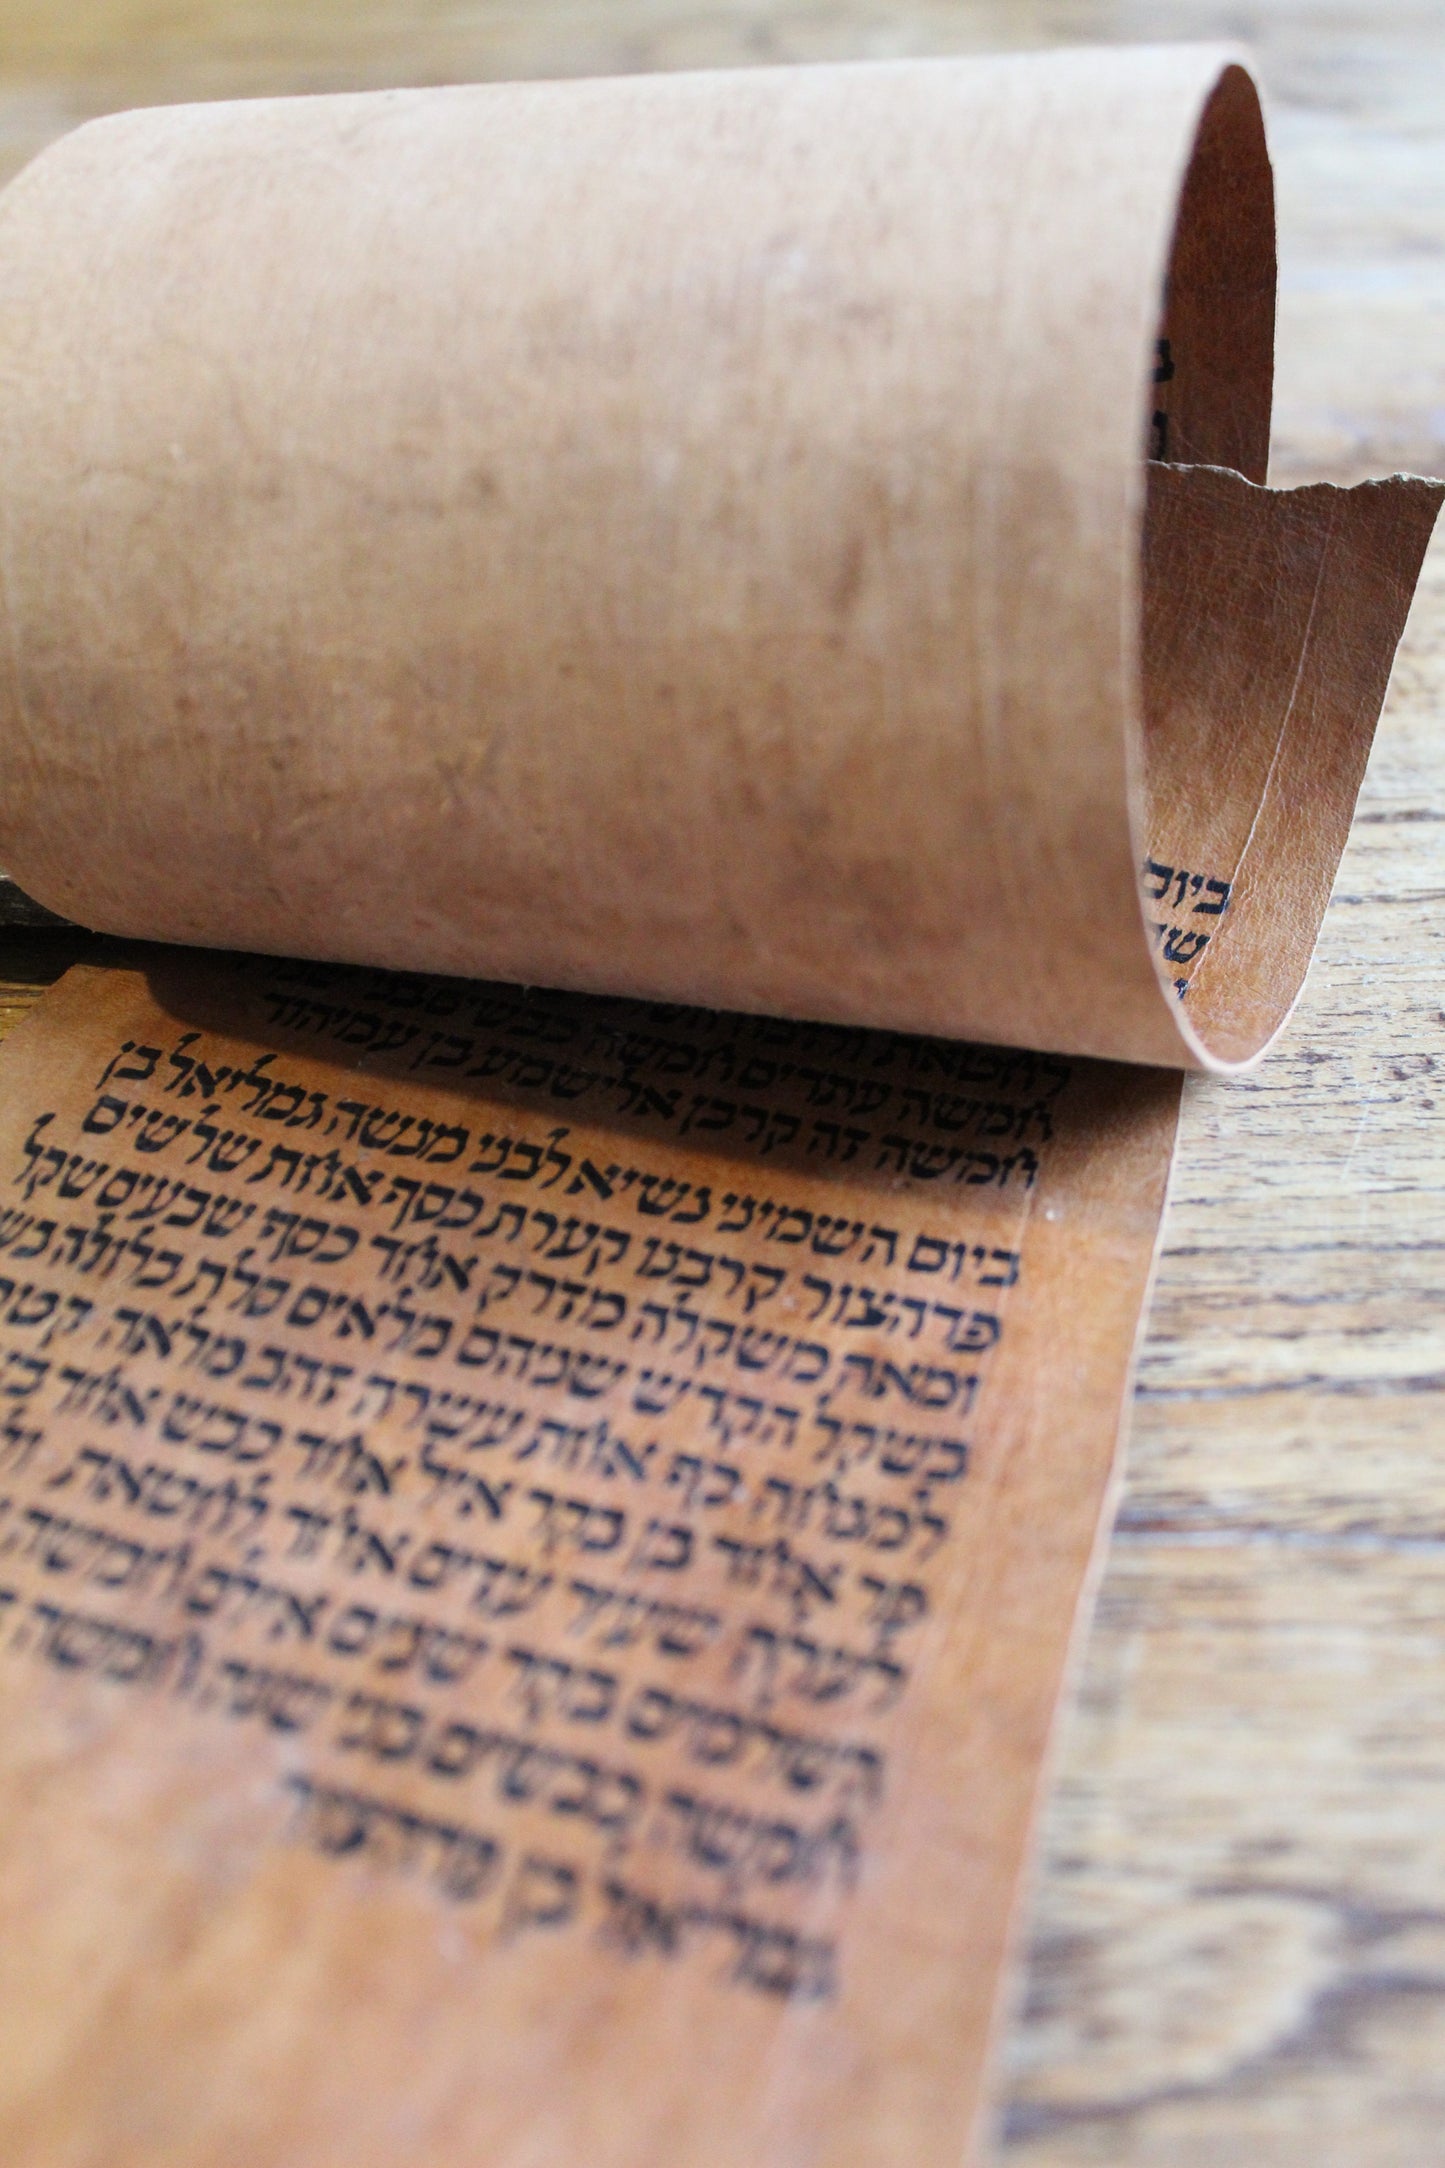 ביום
לחטאת
חמשה עתדים חמשה כבשים בני
חמשה זה קרבן אלישמע בן עמיהוד
ביום השמיני נשיא לבני מנשה גמליאל בן
פדהצור קרבנו קערת כסף אחת שלשים
ומאה משקלה מזרק אחד כסף שבעים שקל
בשקל הקדש שניהם מלאים סלת בלולה בש
למנחה כף אחת עשרה זהב מלאה קטר
פר אחד בן בקר איל אחד כבש אחד בן
לעלה שעיר עזים אחד לחטאת
השלמים בקר שנים אילם חמשה
חמשה כבשים בני שנה חמשה
גמליאל בן פדהצור